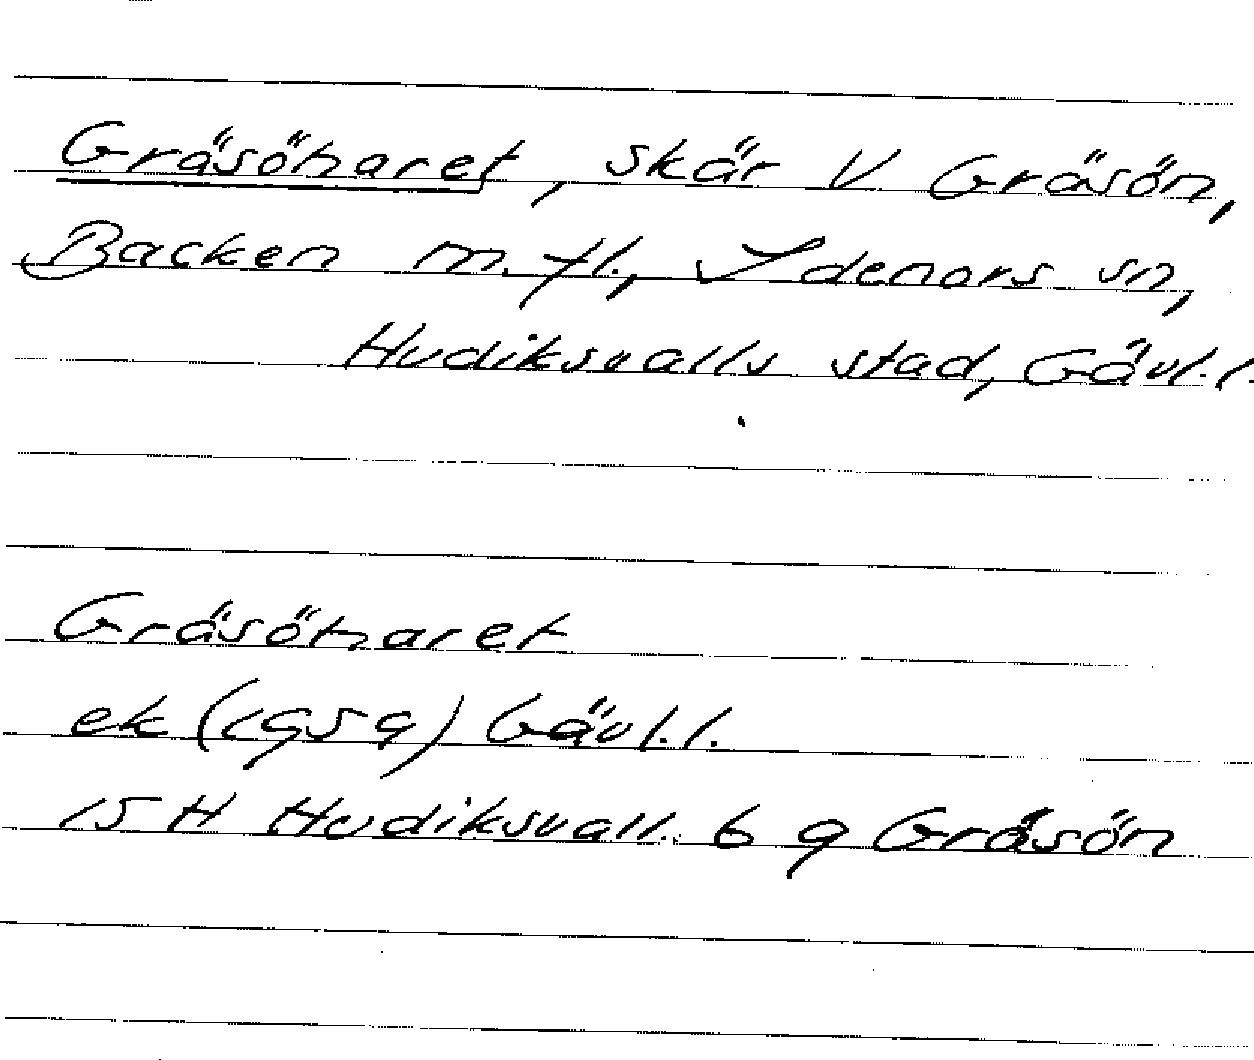 Gräsöharet, skär V Gräsön,
Backen m. fl., Idenors sn,
Hudiksvalls stad, Gävl. l.
Gräsöharet
ek (1959) Gävl. l.
15 H Hudiksvall. 6 g Gräsön